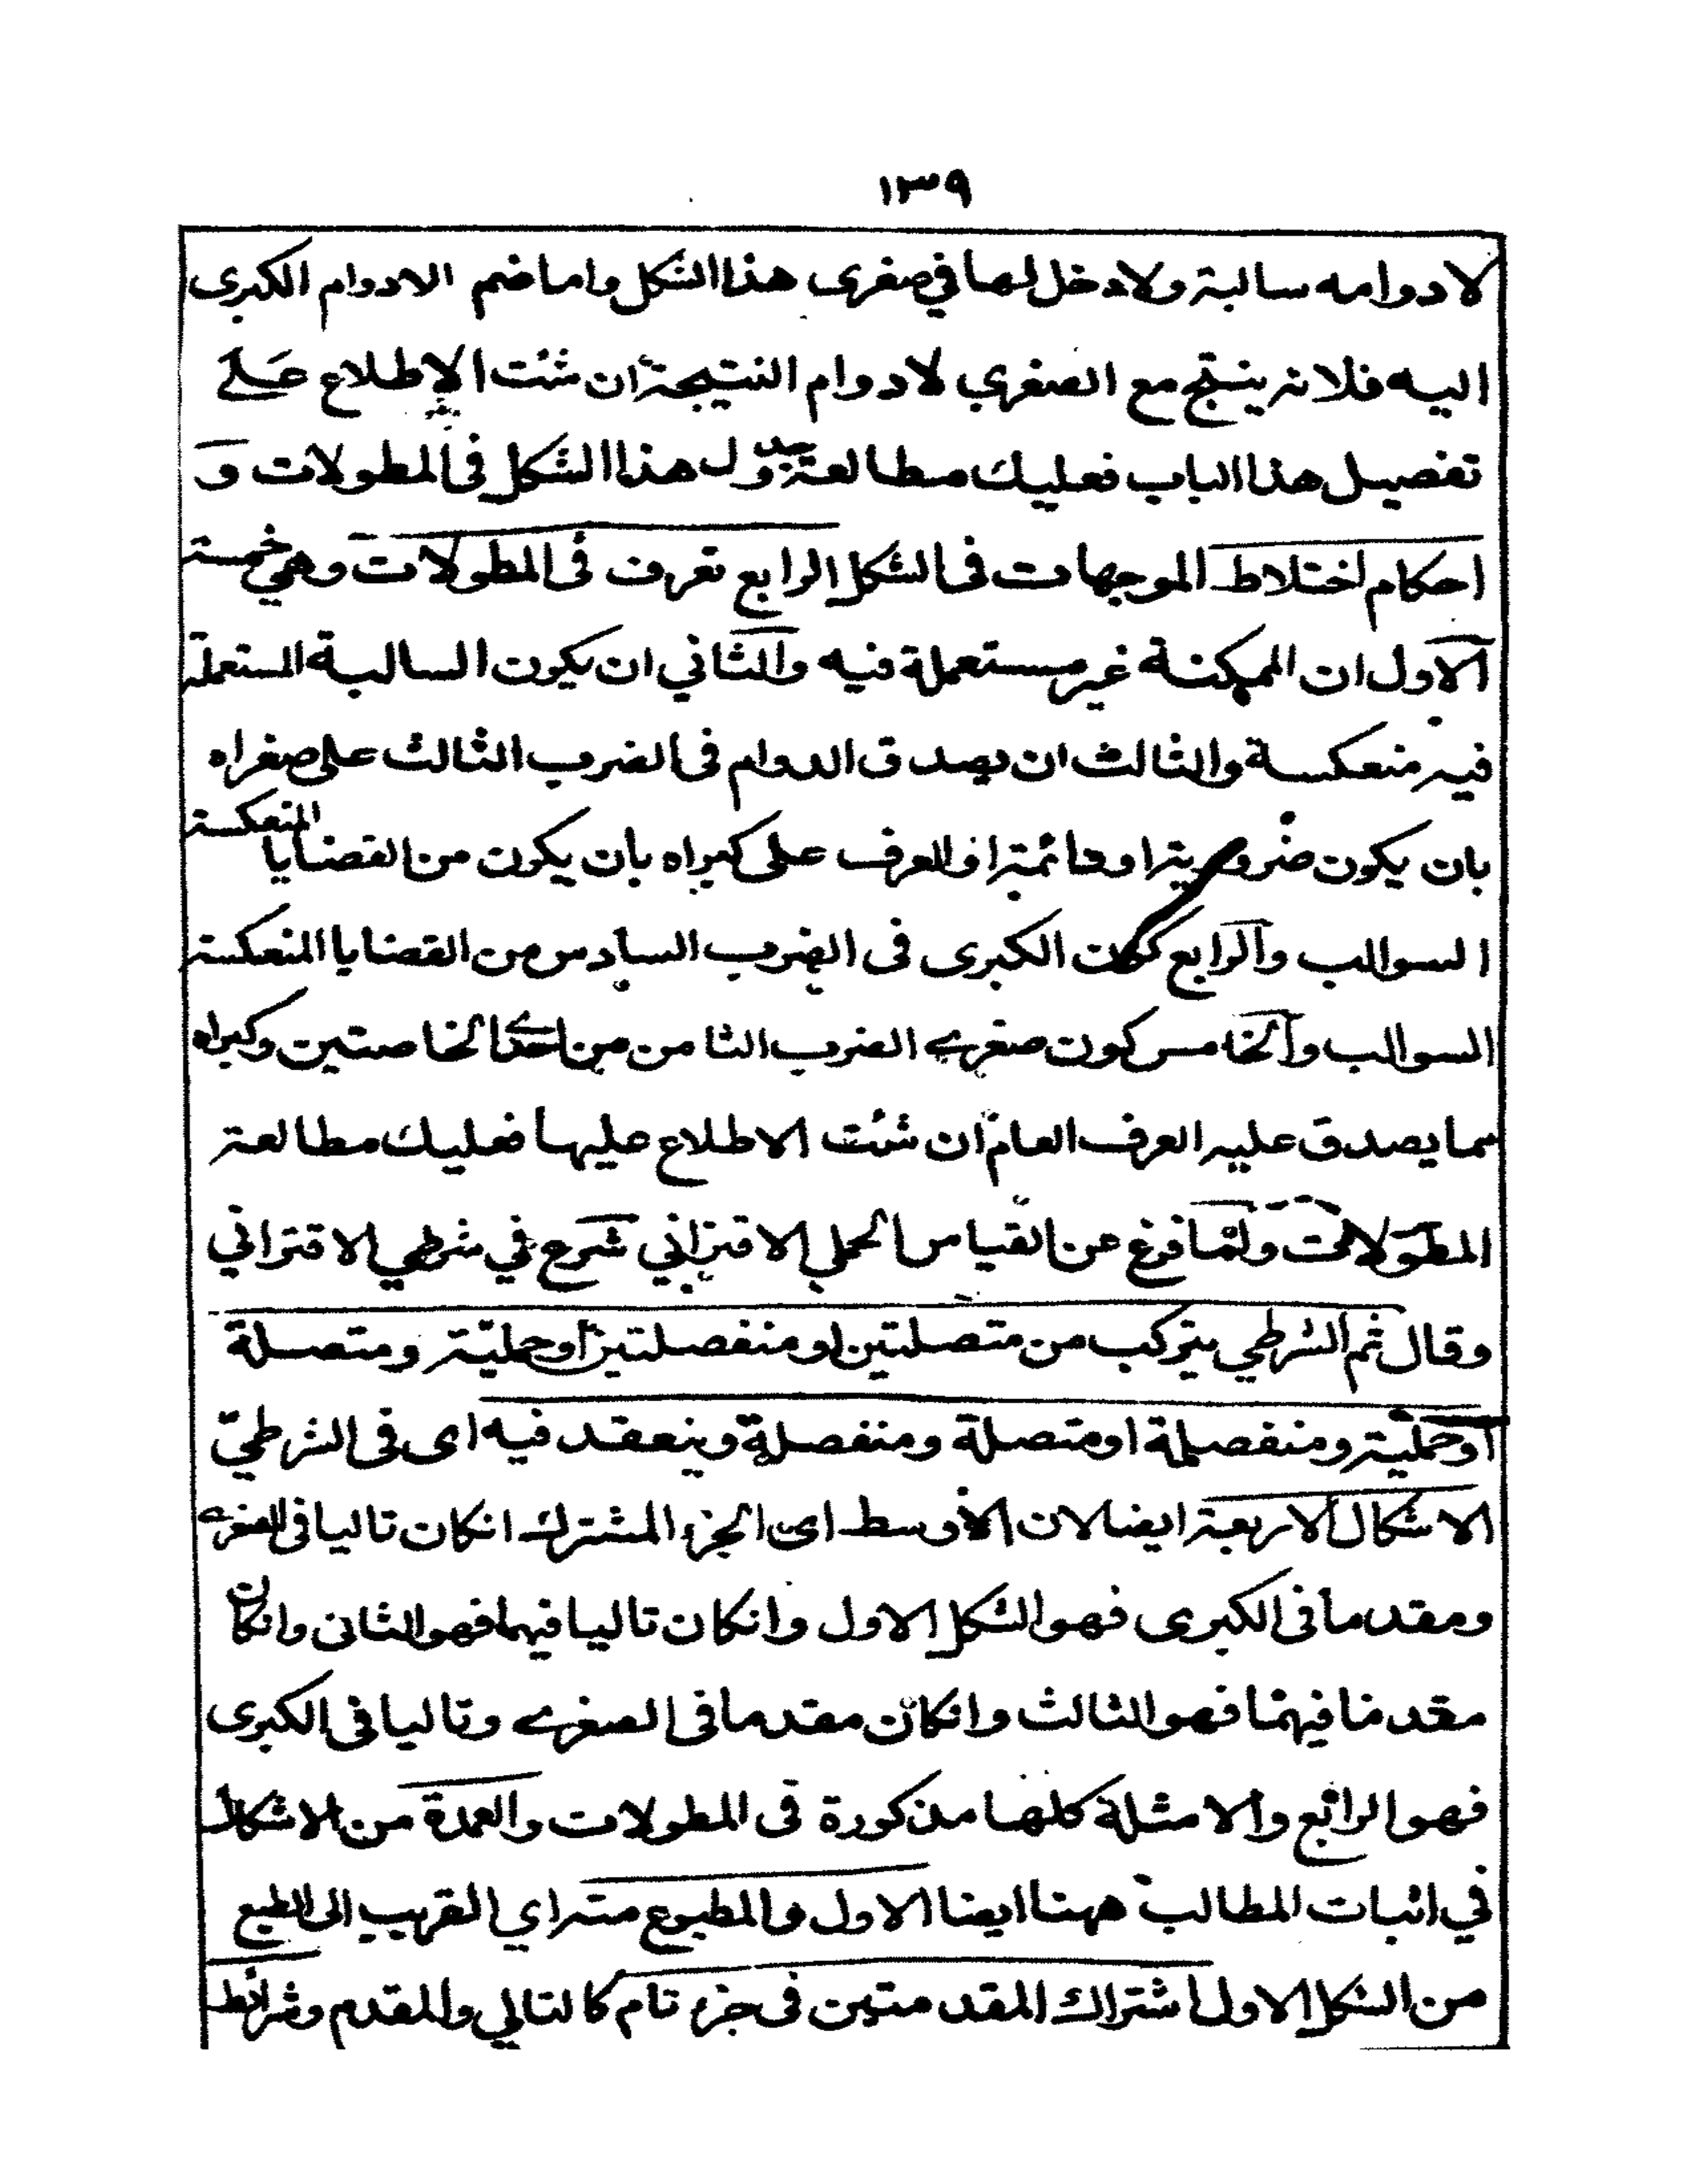 ١٣٩
لا دوامه سالبة ولا دخل لها في صغرى هذا الشكل واما ضم الادوام الكبرى
اليه فلانه ينتج مع الصغرى لادوام النتيجة ان شئت الاطلاع على
تفصيل هذا الباب فعليك مطالعة جدول هذا الشكل فى المطولات و
احكام اختلاط الموجهات فى الشكل الرابع تعرف فى المطولات وهي خمسة
الاول ان الممكنة غير مستعملة فيه والثاني ان يكون السالبة المستعملة
فيه منعكسة والثالث ان يصدق الدوام فى الضرب الثالث على صغراه
بان يكون ضرورية او دائمة او العرف على كبراه بان يكون من القضايا المنعكسة
السوالب والرابع كون الكبرى فى الضرب السادس من القضايا المنعكسة
السوالب والخامس كون صغرى الضرب الثامن من احدى الخاصتين وكبراه
مما يصدق عليه العرف العام ان شئت الاطلاع عليها فعليك مطالعة
المطولات ولما فرغ عن القياس الحملي الاقتراني شرع في شرطي الاقتراني
وقال ثم الشرطي يتركب من متصلتين او منفصلتين او حملية ومتصلة
او حملية ومنفصلة او متصلة ومنفصلة وينعقد فيه اى فى الشرطي
الاشكال الاربعة ايضا لان الاوسط اى الجزء المشترك انكان تاليا فى الصغرى
ومقدما فى الكبرى فهو الشكل الاول وانكان تاليا فيهما فهو الثانى وانكان
مقدما فيهما فهو الثالث وانكان مقدما فى الصغرى وتاليا فى الكبرى
فهو الرابع والامثلة كلها مذكورة فى المطولات والعمدة من الاشكال
في اثبات المطالب ههنا ايضا الاول والمطبوع منه اي القريب الى الطبع
من الشكل الاول اشتراك المقدمتين فى جزء تام كالتالي والمقدم وشرائط